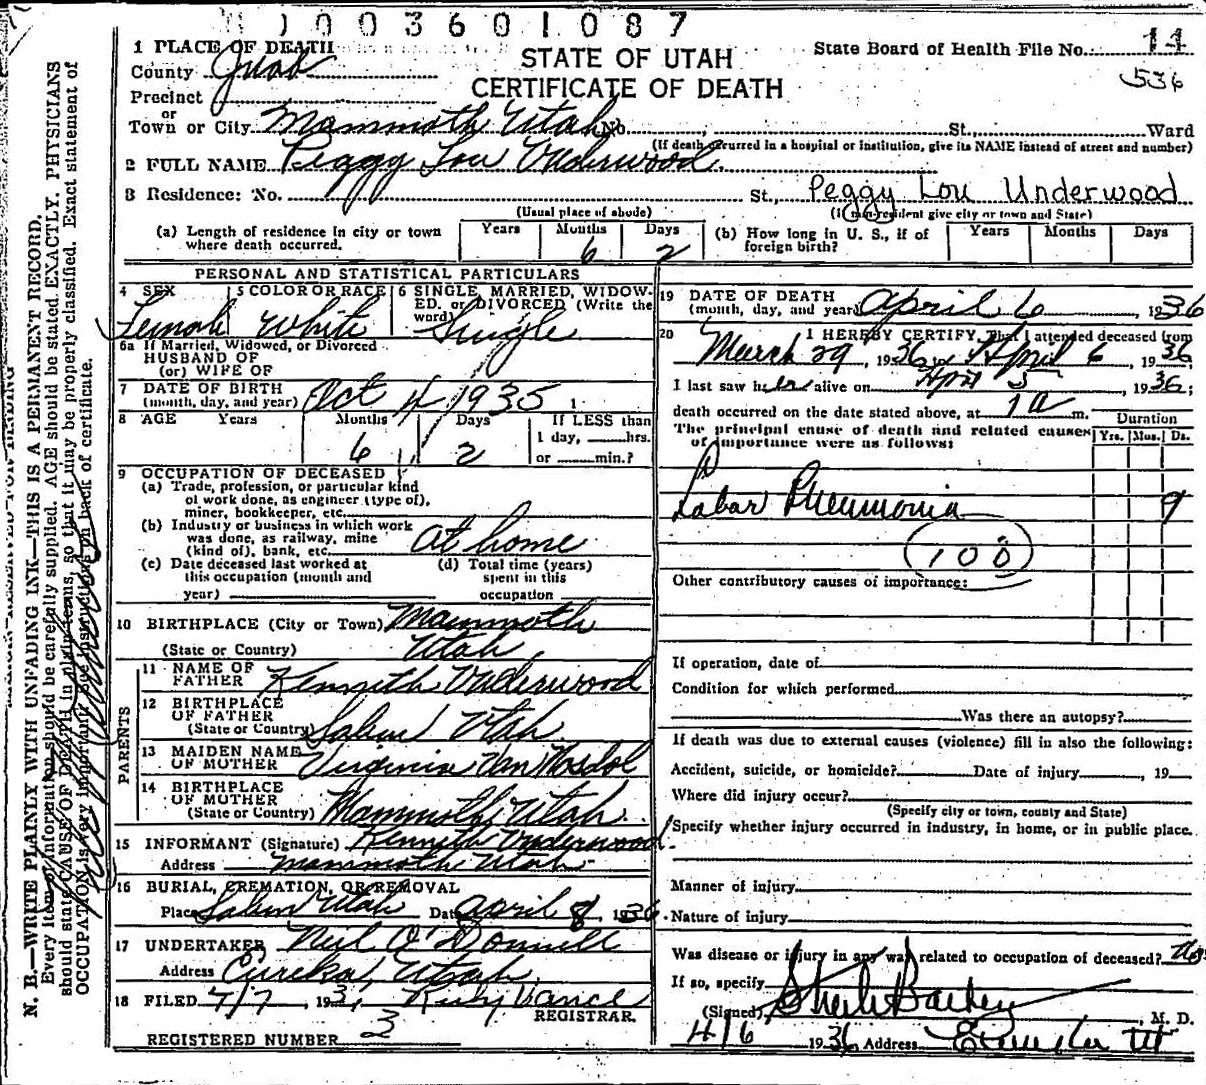 1003601087
1 PLACE OF DEATH
STATE OF UTAH
CERTIFICATE OF DEATH
State Board of Health File No. 14
536
County Juab
Precinct
or
Town or City Mammoth Utah No. , St., Ward
(If death occurred in a hospital or institution, give its NAME instead of street and number)
2 FULL NAME Peggy Lou Underwood
3 Residence: No. St., Peggy Lou Underwood
(Usual place of abode) (If non-resident give city or town and State)
(a) Length of residence in city or town where death occurred. Years Months 6 Days 2
(b) How long in U. S., if of foreign birth? Years Months Days
PERSONAL AND STATISTICAL PARTICULARS
4 SEX Female
5 COLOR OR RACE White
6 SINGLE, MARRIED, WIDOWED. or DIVORCED (Write the word) Single
6a If Married, Widowed, or Divorced
HUSBAND OF
(or) WIFE OF
7 DATE OF BIRTH
(month, day, and year) Oct 4 1935
8 AGE Years Months 6 Days 2 If LESS than
1 day, hrs.
or min.?
9 OCCUPATION OF DECEASED
(a) Trade, profession, or particular kind
of work done, as engineer (type of),
miner, bookkeeper, etc.
(b) Industry or business in which work
was done, as railway, mine
(kind of), bank, etc. at home
(c) Date deceased last worked at
this occupation (month and
year)
(d) Total time (years)
spent in this
occupation
10 BIRTHPLACE (City or Town) Mammoth
(State or Country) Utah
PARENTS
11 NAME OF
FATHER Kenneth Underwood
12 BIRTHPLACE
OF FATHER
(State or Country) Salem Utah
13 MAIDEN NAME
OF MOTHER Virginia Van Nosdol
14 BIRTHPLACE
OF MOTHER
(State or Country) Mammoth Utah
15 INFORMANT (Signature) Kenneth Underwood
Address Mammoth Utah
16 BURIAL, CREMATION, OR REMOVAL
Place Salem Utah Date April 8, 1936
17 UNDERTAKER Neil O'Donnell
Address Eureka, Utah
18 FILED 4/7, 193 Ruby Vance
REGISTRAR.
REGISTERED NUMBER 3
19 DATE OF DEATH
(month, day, and year) April 6 1936
20 I HEREBY CERTIFY, That I attended deceased from
March 29, 1936 to April 6, 1936
I last saw her alive on April 5, 1936;
death occurred on the date stated above, at 1 a m.
The principal cause of death and related causes
of importance were as follows:
Duration
Yrs. Mos. Ds.
Lobar Pneumonia 9
100
Other contributory causes of importance:
If operation, date of
Condition for which performed
Was there an autopsy?
If death was due to external causes (violence) fill in also the following:
Accident, suicide, or homicide? Date of injury , 19
Where did injury occur?
(Specify city or town, county and State)
Specify whether injury occurred in industry, in home, or in public place.
Manner of injury
Nature of injury
Was disease or injury in any way related to occupation of deceased?
If so, specify
(Signed) Bailey, M. D.
4/6 1936 Address
N. B.—WRITE PLAINLY WITH UNFADING INK—THIS IS A PERMANENT RECORD.
Every item of information should be carefully supplied. AGE should be stated EXACTLY. PHYSICIANS
should state CAUSE OF DEATH in plain terms, so that it may be properly classified. Exact statement of
OCCUPATION is very important. See instructions on back of certificate.